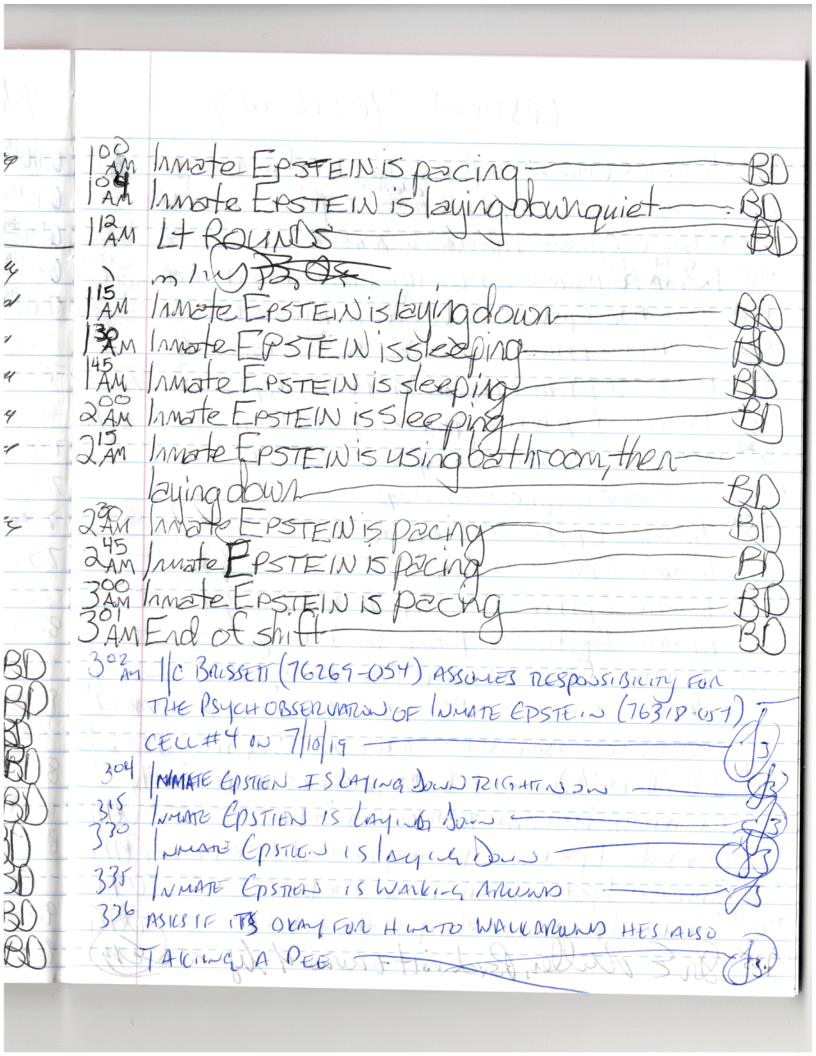 1:00 AM Inmate EPSTEIN is pacing BD
1:04 AM Inmate EPSTEIN is laying down quiet BD
1:12 AM Lt ROUNDS BD
1:15 AM Inmate EPSTEIN is laying down BD
1:30 AM Inmate EPSTEIN is sleeping BD
1:45 AM Inmate EPSTEIN is sleeping BD
2:00 AM Inmate EPSTEIN is sleeping BD
2:15 AM Inmate EPSTEIN is using bathroom, then
laying down BD
2:30 AM Inmate EPSTEIN is pacing BD
2:45 AM Inmate EPSTEIN is pacing BD
3:00 AM Inmate EPSTEIN is pacng BD
3:01 AM End of shift BD
BD 3:02 AM I/C BRISSETT (76269-054) ASSUMES RESPONSIBILITY FOR
BD THE PSYCH OBSERVATION OF INMATE EPSTEIN (76318-054)
BD CELL #4 ON 7/10/19
BD 304 INMATE EPSTIEN IS LAYING DOWN RIGHT NOW
BD 315 INMATE EPSTIEN IS LAYING DOWN
BD 330 INMATE EPSTIEN IS LAYING DOWN
BD 335 INMATE EPSTIEN IS WALKING AROUND
BD 336 ASKS IF ITS OKAY FOR HIM TO WALK AROUND HES ALSO
BD TAKING A PEE